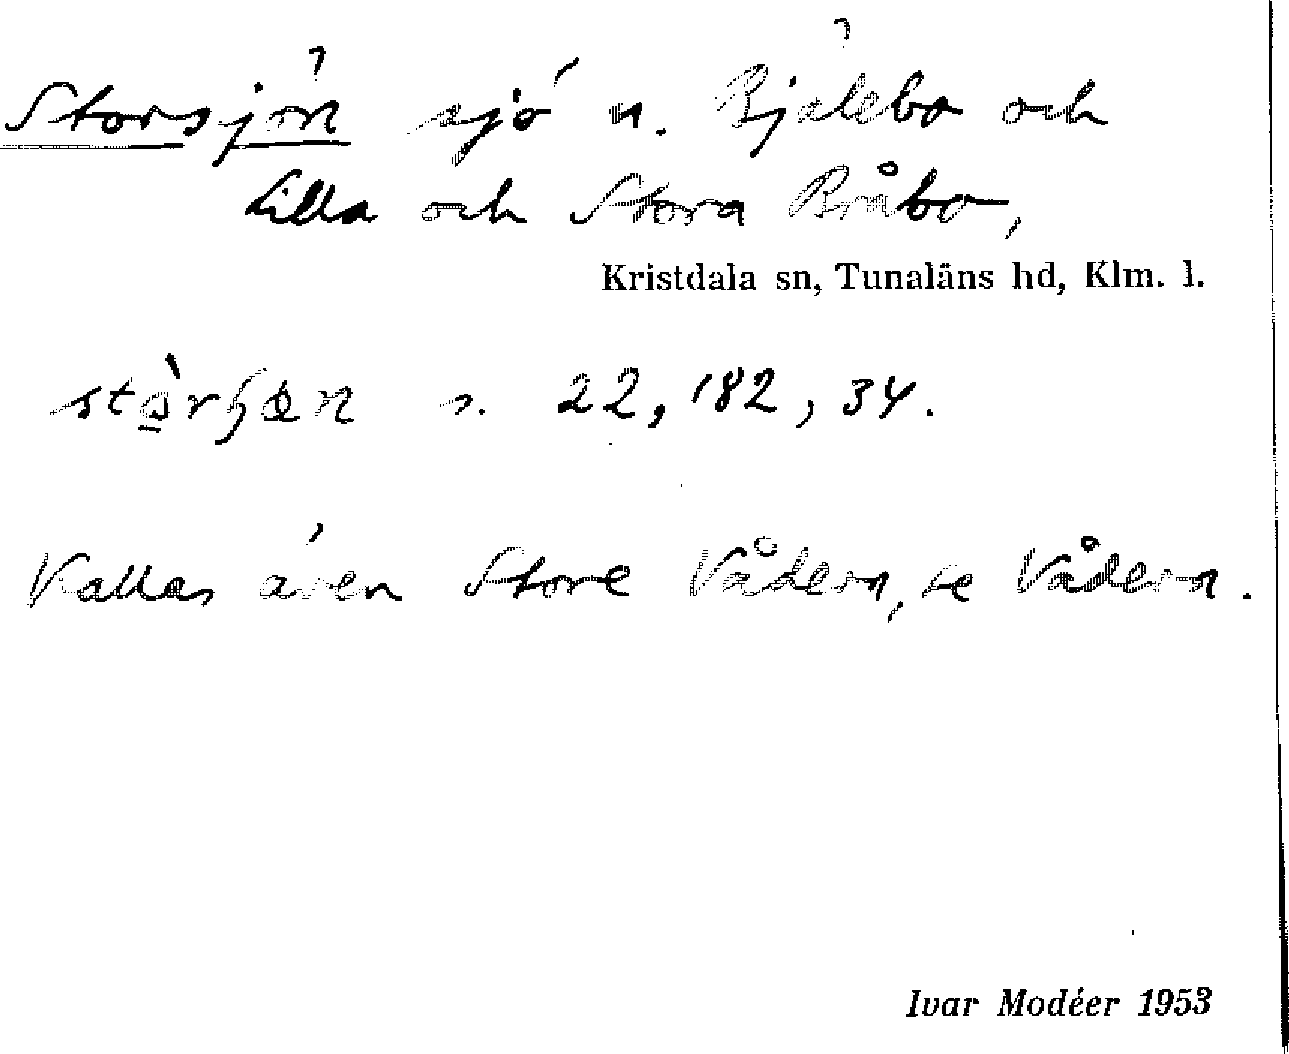 Storsjön sjö n. Bjälebo och
Lilla och Stora Bråbo,
Kristdala sn, Tunaläns hd, Klm. l.
s. 22, 182, 34.
Kallas även Store Vådern, se Vådern.
Ivar Modéer 1953